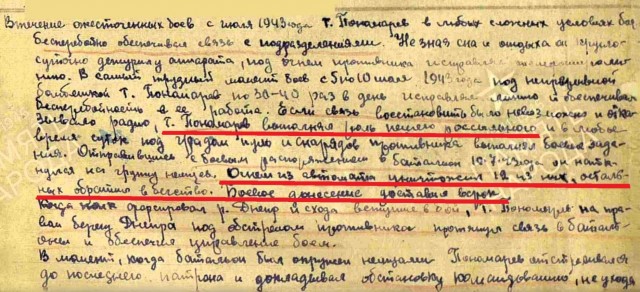 В течение ожесточенных боев с июля 1943 года т. Пономарев в любых сложных условиях боя
бесперебойно обеспечивал связь с подразделениями. Не зная сна и отдыха он кругло-
суточно дежурил у аппарата, под огнем противника исправлял
нию. В самый трудный момент боев с 5 по 10 июля 1943 года под непрерывной
бомбежкой т. Пономарев по 30-40 раз в день исправлял линию и обеспечивал
бесперебойность в ее работе. Если связь восстановить было невозможно и отка-
зывало радио, т. Пономарев выполнял роль пешего рассыльного и в любое
время суток под градом пуль и снарядов противника выполнял боевые зада-
ния. Отправившись с боевым распоряжением в батальон он натк-
нулся на группу немцев. Огнем из автомата уничтожил 12 из них, осталь-
ных обратил в бегство. Боевое донесение доставил в срок.
Когда полк форсировал р. Днепр и сходу вступил в бой, т. Пономарев на пра-
вом берегу Днепра под обстрелом противника протянул связь в баталь-
оны и обеспечил управление боем.
В момент, когда батальон был окружен немцами Пономарев отстреливался
до последнего патрона и докладывал обстановку командованию, не уходя